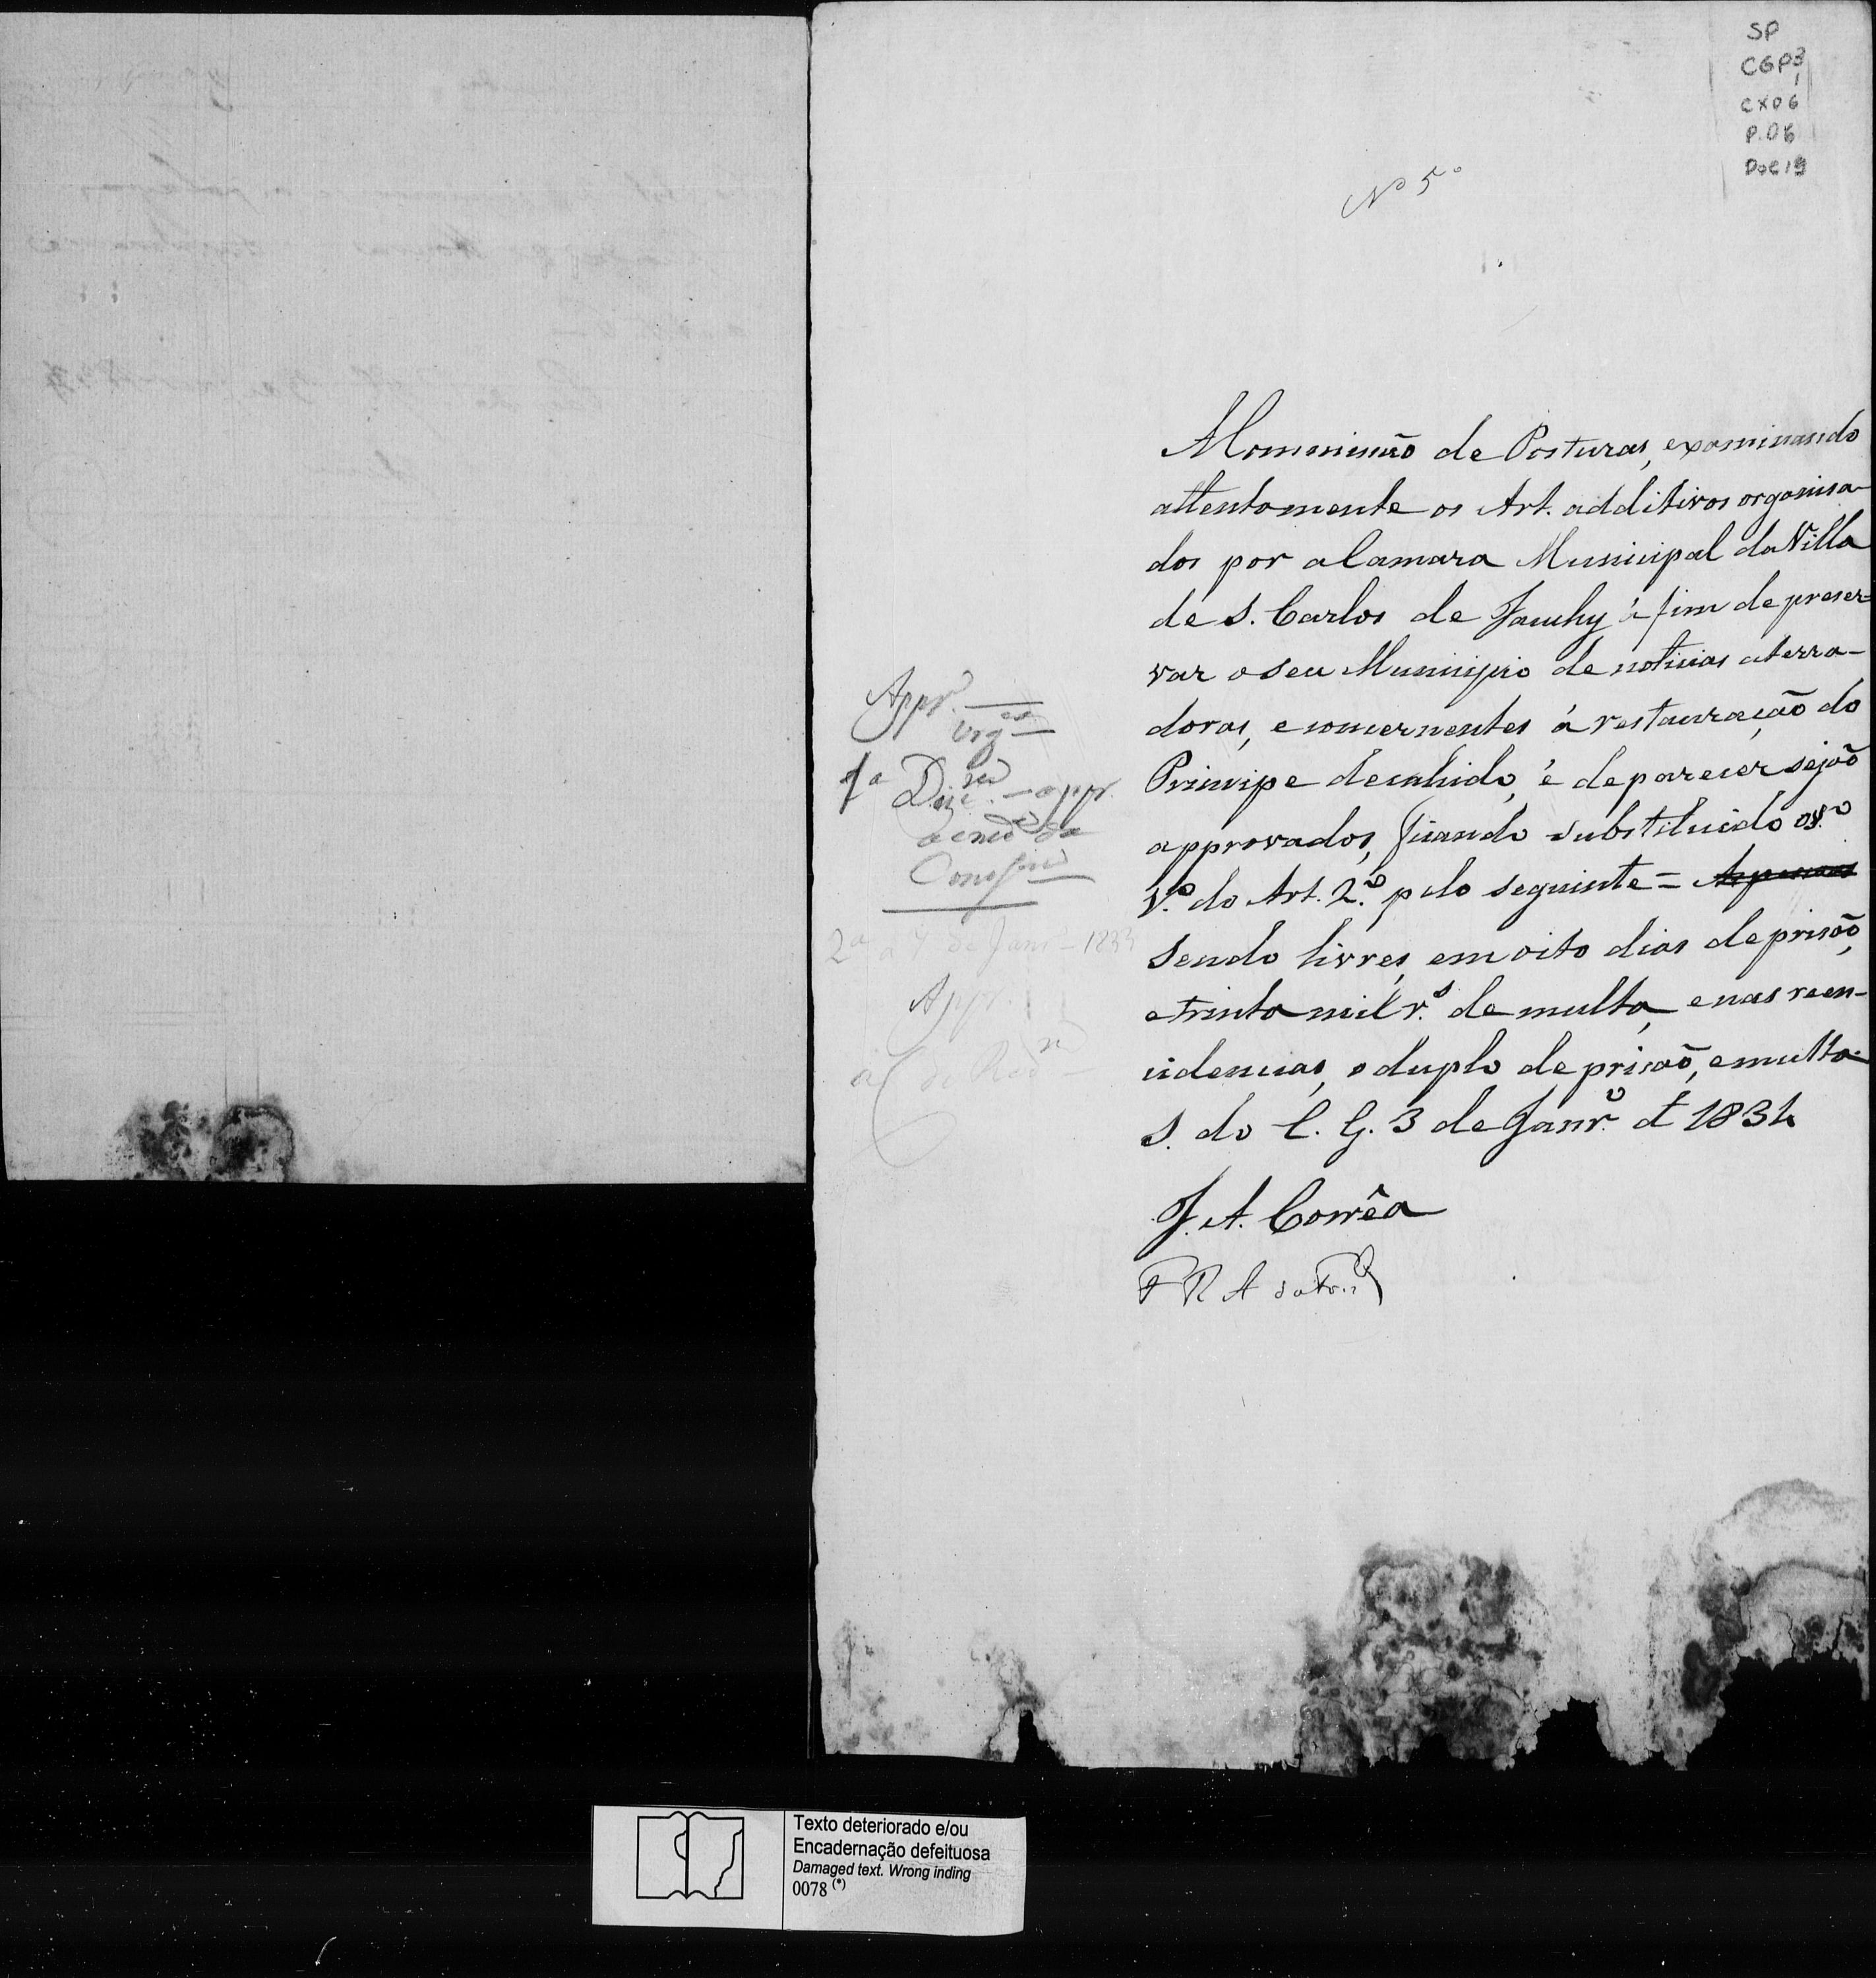 SP
CGP3
1
CX06
P.06
Doc 19
Nº 5º
A Commissão de Posturas, examinando
attentamente os Art. additivos organisa-
dos por a Camara Municipal da Villa
de S. Carlos de Jacuhy à fim de preser-
var o seu Municipio de noticias aterra-
doras, e concernentes á restauração do
Principe decahido, é de parecer sejaõ
approvados, ficando substituido o §.º
1.º do Art. 2.º pelo seguinte =
sendo livres, em oito dias de prisaõ,
e trinta mil r.s de multa, e nas rein-
cidencias, o duplo de prisaõ, e multa.
S. do C. G. 3 de Janr.º d 1834
J. A. Corrêa
F R A
Appr.
urg.ca
1ª Disc.am - appr.
a emd.a da
Comissm
2ª a 7 de Janr.o 1834
Appr.
à C de Red.m
Texto deteriorado e/ou
Encadernação defeituosa
Damaged text. Wrong inding
0078 (*)